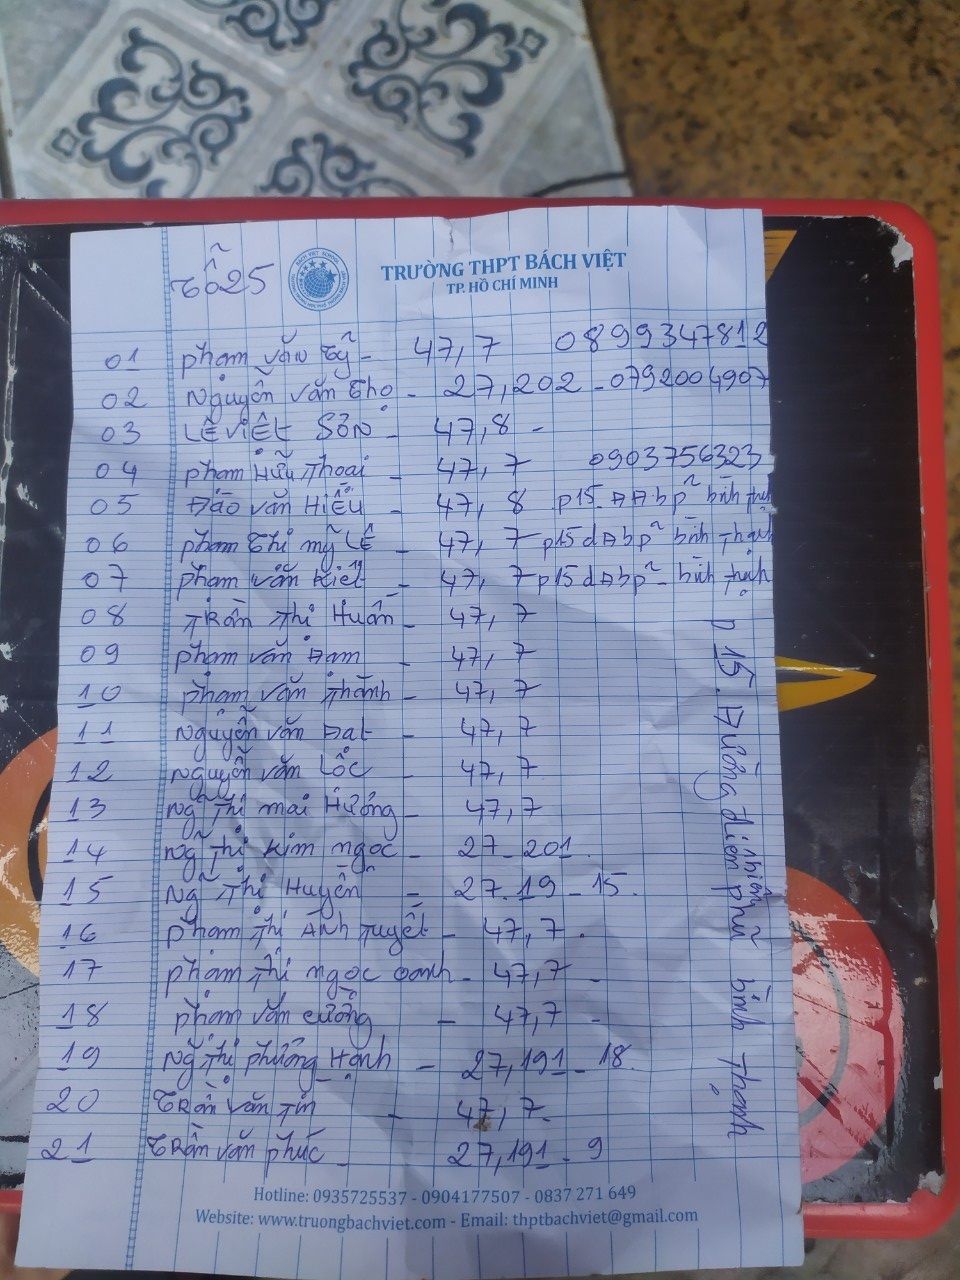 Tổ 25
TRƯỜNG THPT BÁCH VIỆT
TP. HỒ CHÍ MINH
01 phạm văn Tỹ - 47,7 0899347812
02 Nguyễn văn Tho - 27,202 - 0792004907
03 LÊ VIẾT SƠN - 47,8 -
04 phạm Hữu Thoại - 47,7 0903756323
05 Đào văn HIẾU - 47,8 p15 ĐĐbp² bình thạnh
06 phạm Thị mỹ LỆ - 47,7 p15 đĐbp² bình Thạnh
07 phạm văn Kiệt - 47,7 p15 dĐbp² - bình Thạnh
08 TRẦN Thị Huấn - 47,7
09 phạm văn Đam - 47,7
10 phạm văn Thành - 47,7
11 Nguyễn văn Đạt - 47,7
12 Nguyễn văn Lộc - 47,7
13 Ng Thị mai Hường - 47,7
14 Ng Thị Kim ngọc - 27-201.
15 Ng Thị Huyền - 27.19-15.
16 phạm Thị Ánh Tuyết - 47,7.
17 phạm Thị ngọc oanh - 47,7 -
18 phạm văn cường - 47,7 -
19 Ng Thị phương Hạnh - 27,191-18.
20 TRần văn Tín - 47,7.
21 TRần văn phúc - 27,191-9
p 15. Đường điện biên phủ bình Thạnh
Hotline: 0935725537 - 0904177507 - 0837 271 649
Website: www.truongbachviet.com - Email: thptbachviet@gmail.com